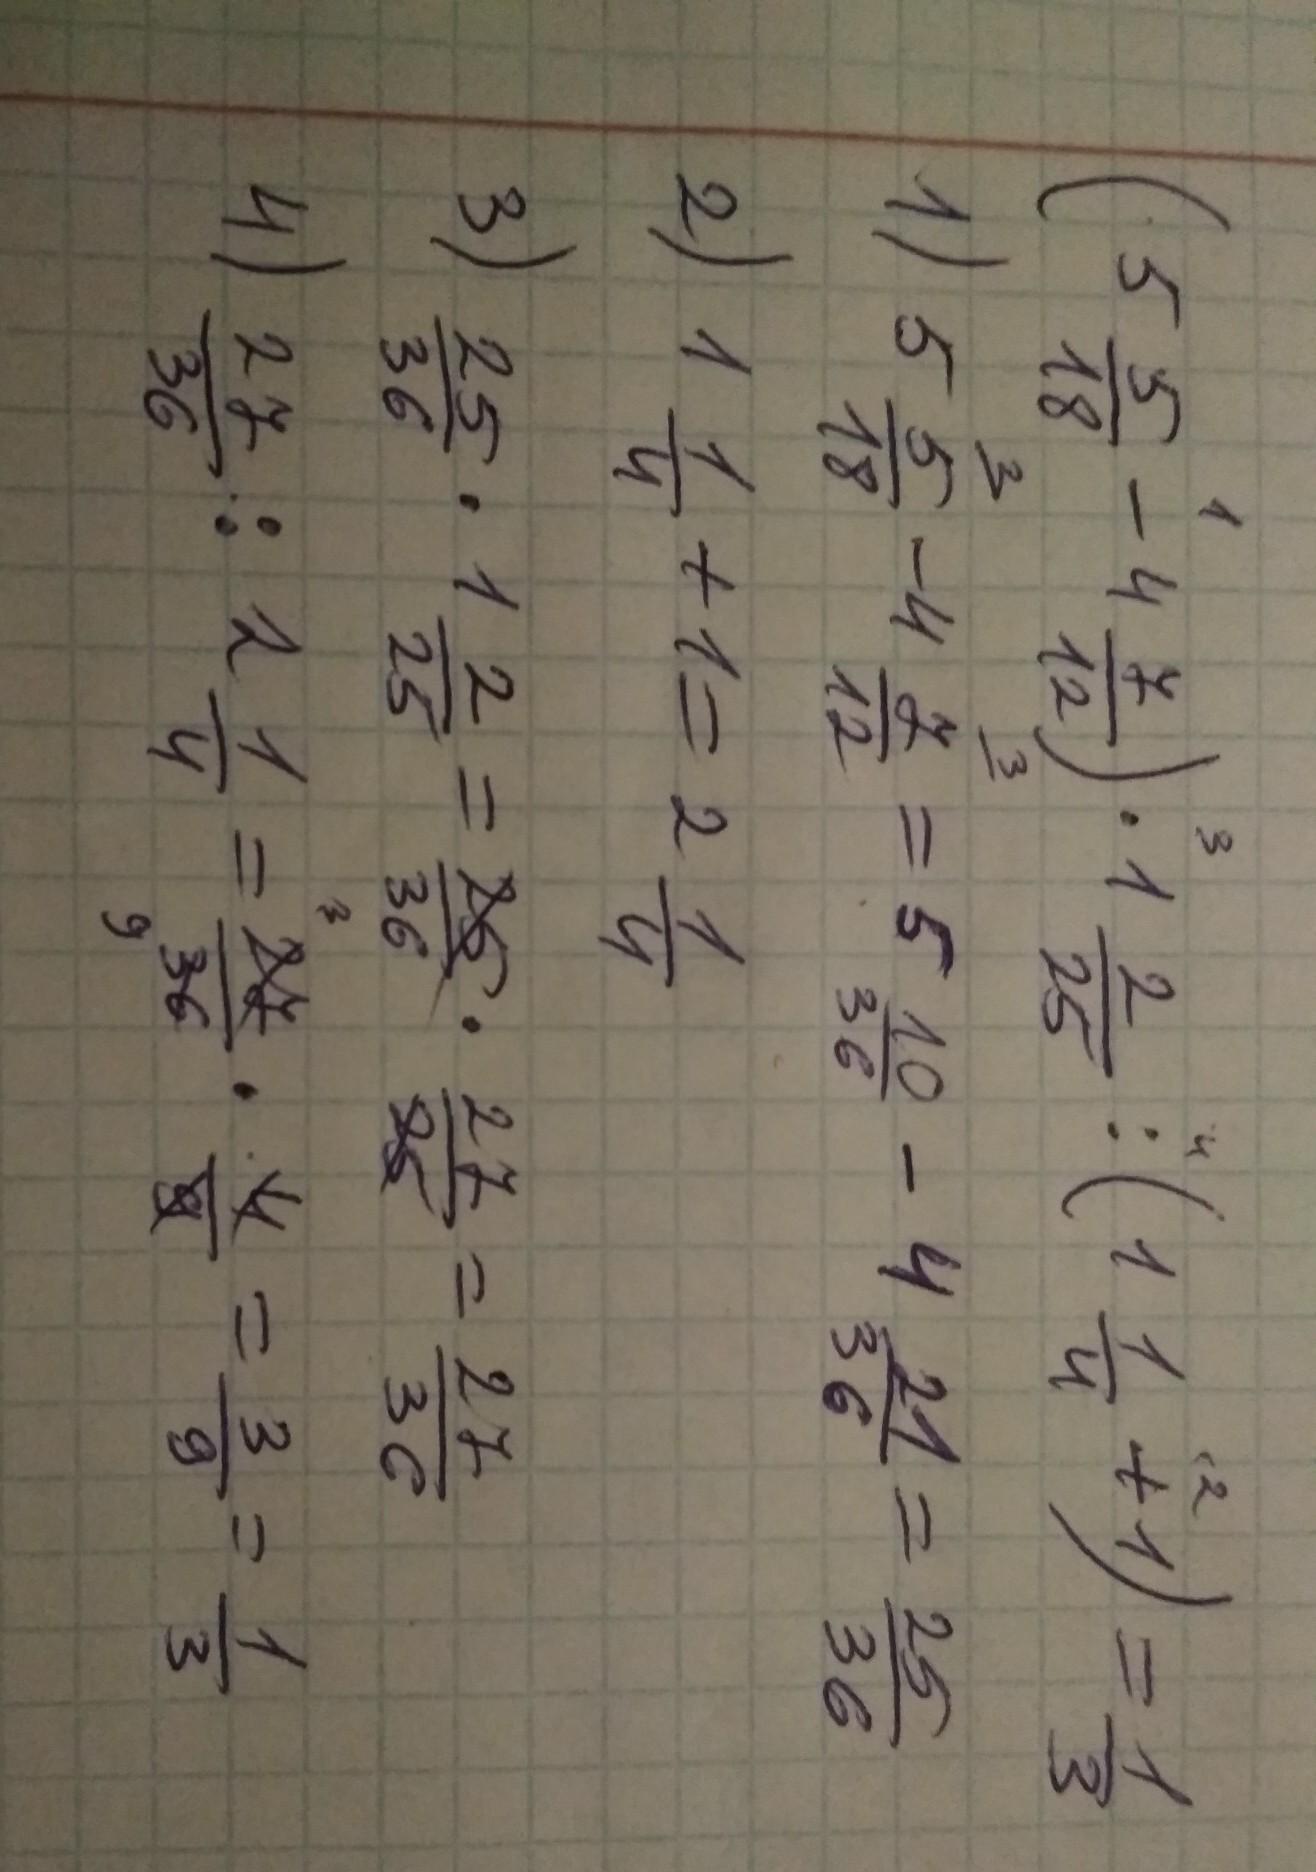 (5 5/18 - 4 7/12) · 1 2/25 : (1 1/4 + 1) = 1/3
1) 5 5/18 - 4 7/12 = 5 10/36 - 4 21/36 = 25/36
2) 1 1/4 + 1 = 2 1/4
3) 25/36 · 1 2/25 = 25/36 · 27/25 = 27/36
4) 27/36 : 2 1/4 = 27/36 · 4/9 = 3/9 = 1/3